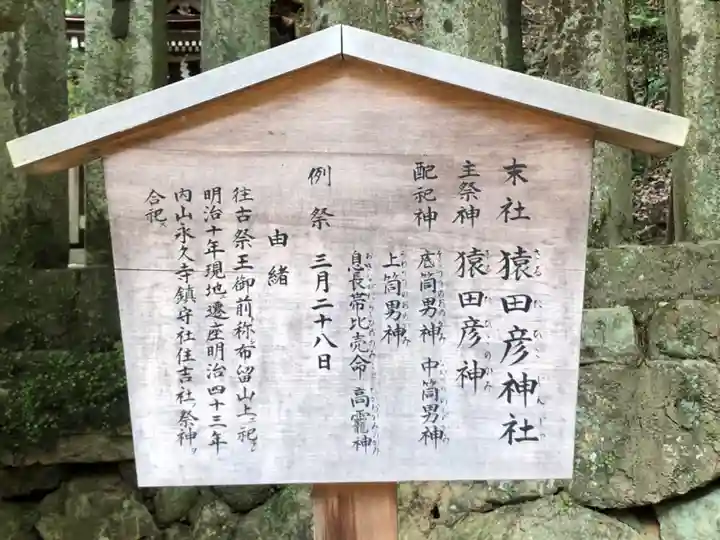 末社 猿田彦神社
主祭神 猿田彦神
配祀神 底筒男神 中筒男神
上筒男神
息長帯比売命 高靇神
例祭 三月二十八日
由緒
往古祭王御前称布留山上ニ祀ル
明治十年現地ニ遷座明治四十三年
内山永久寺鎮守社住吉社ノ祭神ヲ
合祀ス